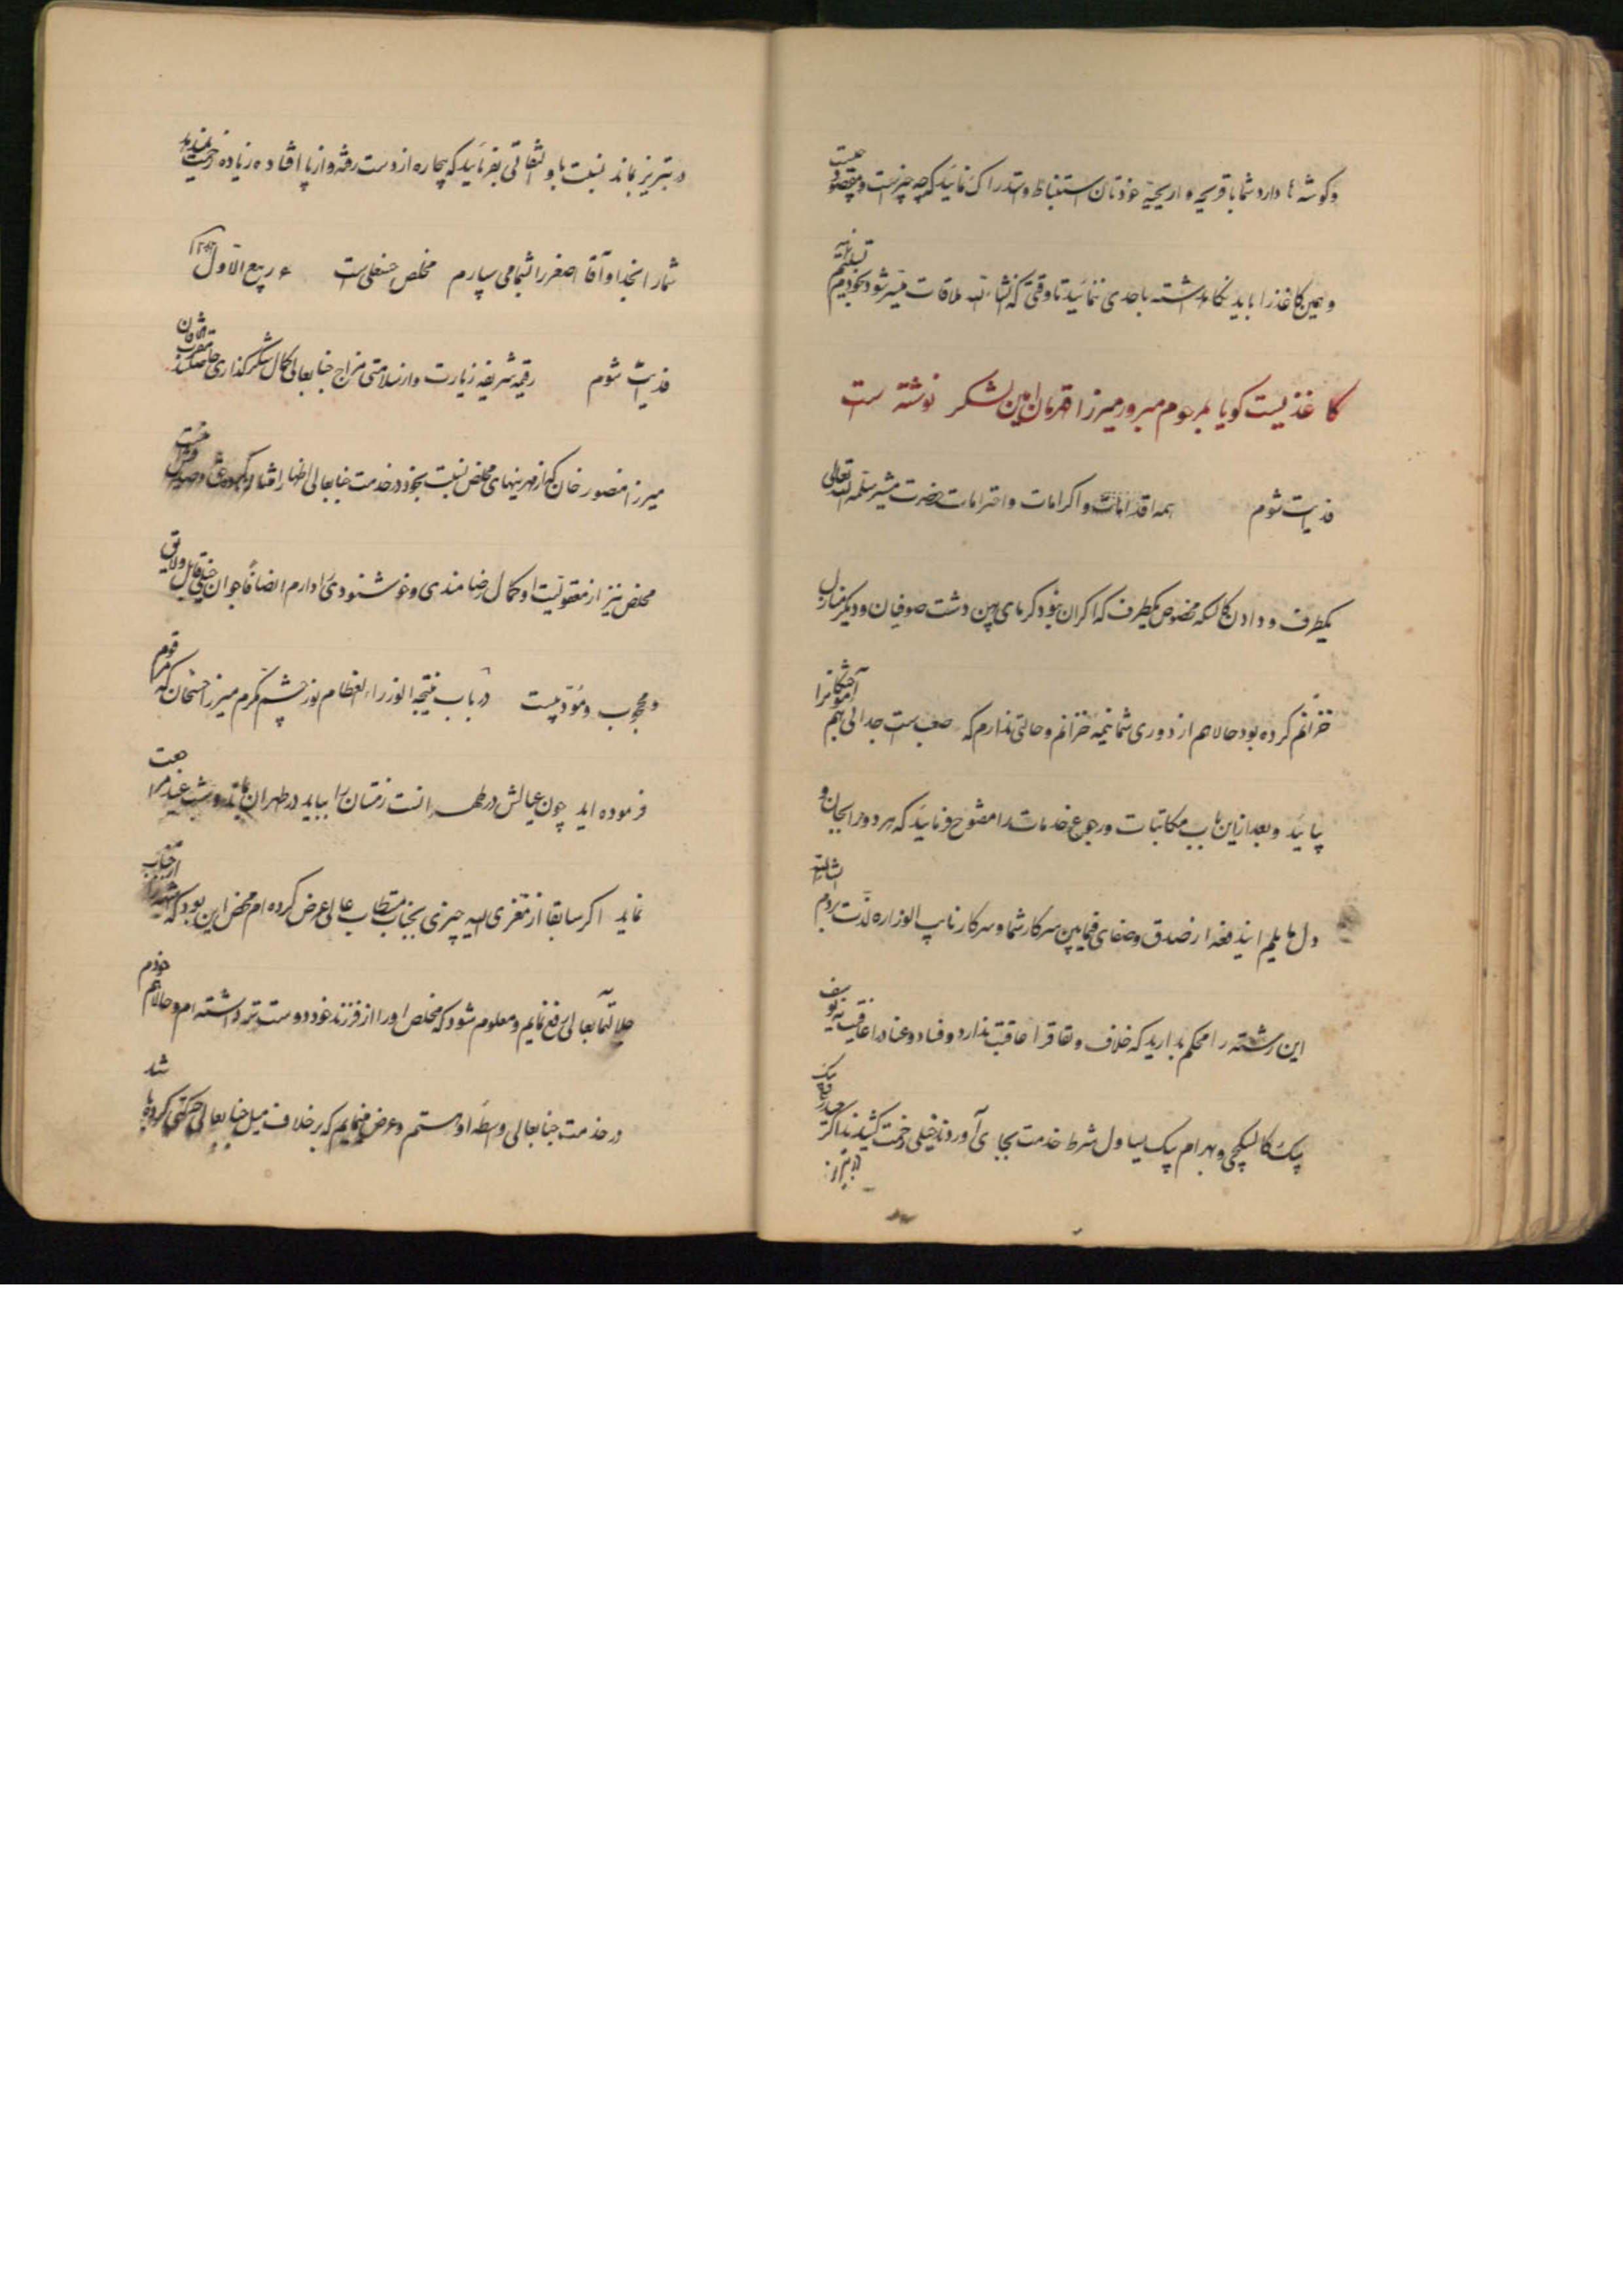 و گوشه ها دارد شما با قریحه و اریحیه خودتان استنباط و استدراک نمائید که چه چیز است و مقصود چیست
و همین کاغذ را باید نگاه داشته باحدی ننمائید تا وقتی که انشاءالله ملاقات میسر شود بخودم تسلیم نمائید
کاغذیست گویا بمرحوم مبرور میرزا قهرمان امین لشکر نوشته است
فدیت شوم همه اقدامات و اکرامات و احترامات حضرت مشیر سلمه الله تعالی
یکطرف و دادن کالسکه مخصوص یکطرف که اگر آن نبود گرمای پهن دشت صوفیان و دیگر منازل
خزانم کرده بود حالا هم از دوری شما نیمه خزانم و حالتی ندارم که صعب است جدائی بهم آموختگانرا
بپائید و بعد از این باب مکاتبات و رجوع خدمات را مفتوح فرمائید که هر دو را بجان و
دل مایلم ایندفعه از صدق و صفای فیمابین سرکار شما و سرکار نایب الوزاره لذت بردم انشاءالله
این رشته را محکم بدارید که خلاف و نفاق را عاقبت ندارد و فساد و عناد را عاقبت نه یوسف
بیک کالسکچی و بهرام بیک یساول شرط خدمت بجای آوردند خیلی زحمت کشیدند اگر
در تبریز بماند نسبت باو التفاتی بفرمائید که بیچاره از دست رفته و از پا افتاده زیاده زحمت ندهد
شما را بخدا و آقا اصغر را بشما می سپارم مخلص حسنعلی است ۶ ربیع الاول
فدیت شوم رقیمه شریفه زیارت و از سلامتی مزاج جنابعالی کمال شکرگذاری حاصل شد مقرب الخاقان
میرزا منصور خان که از مهربنیهای مخلص نسبت بخود در خدمت جنابعالی اظهار امتنان کرده
مخلص نیز از معقولیت او کمال رضامندی و خوشنودی را دارم انصافا جوان خیلی قابل و لایق
و محجوب و مؤدبیست در باب نتیجه الوزراء العظام نور چشم مکرم میرزا حسنخان که مرقوم
فرموده اید چون عیالش در طهرانست زمستان را بیاید در طهران باشد و شب عید مراجعت
نماید اگر سابقا از متغری الیه چیزی بجناب مستطاب عالی عرض کرده ام محض این بود که شبهه را از جناب
جلالتمآبعالی رفع نمایم و معلوم شود که مخلص او را از فرزند خود دوست تر داشته ام و حالا هم خودم
در خدمت جنابعالی واسطه او هستم و عرض مینمایم که بر خلاف میل جنابعالی حرکتی کرده باشد